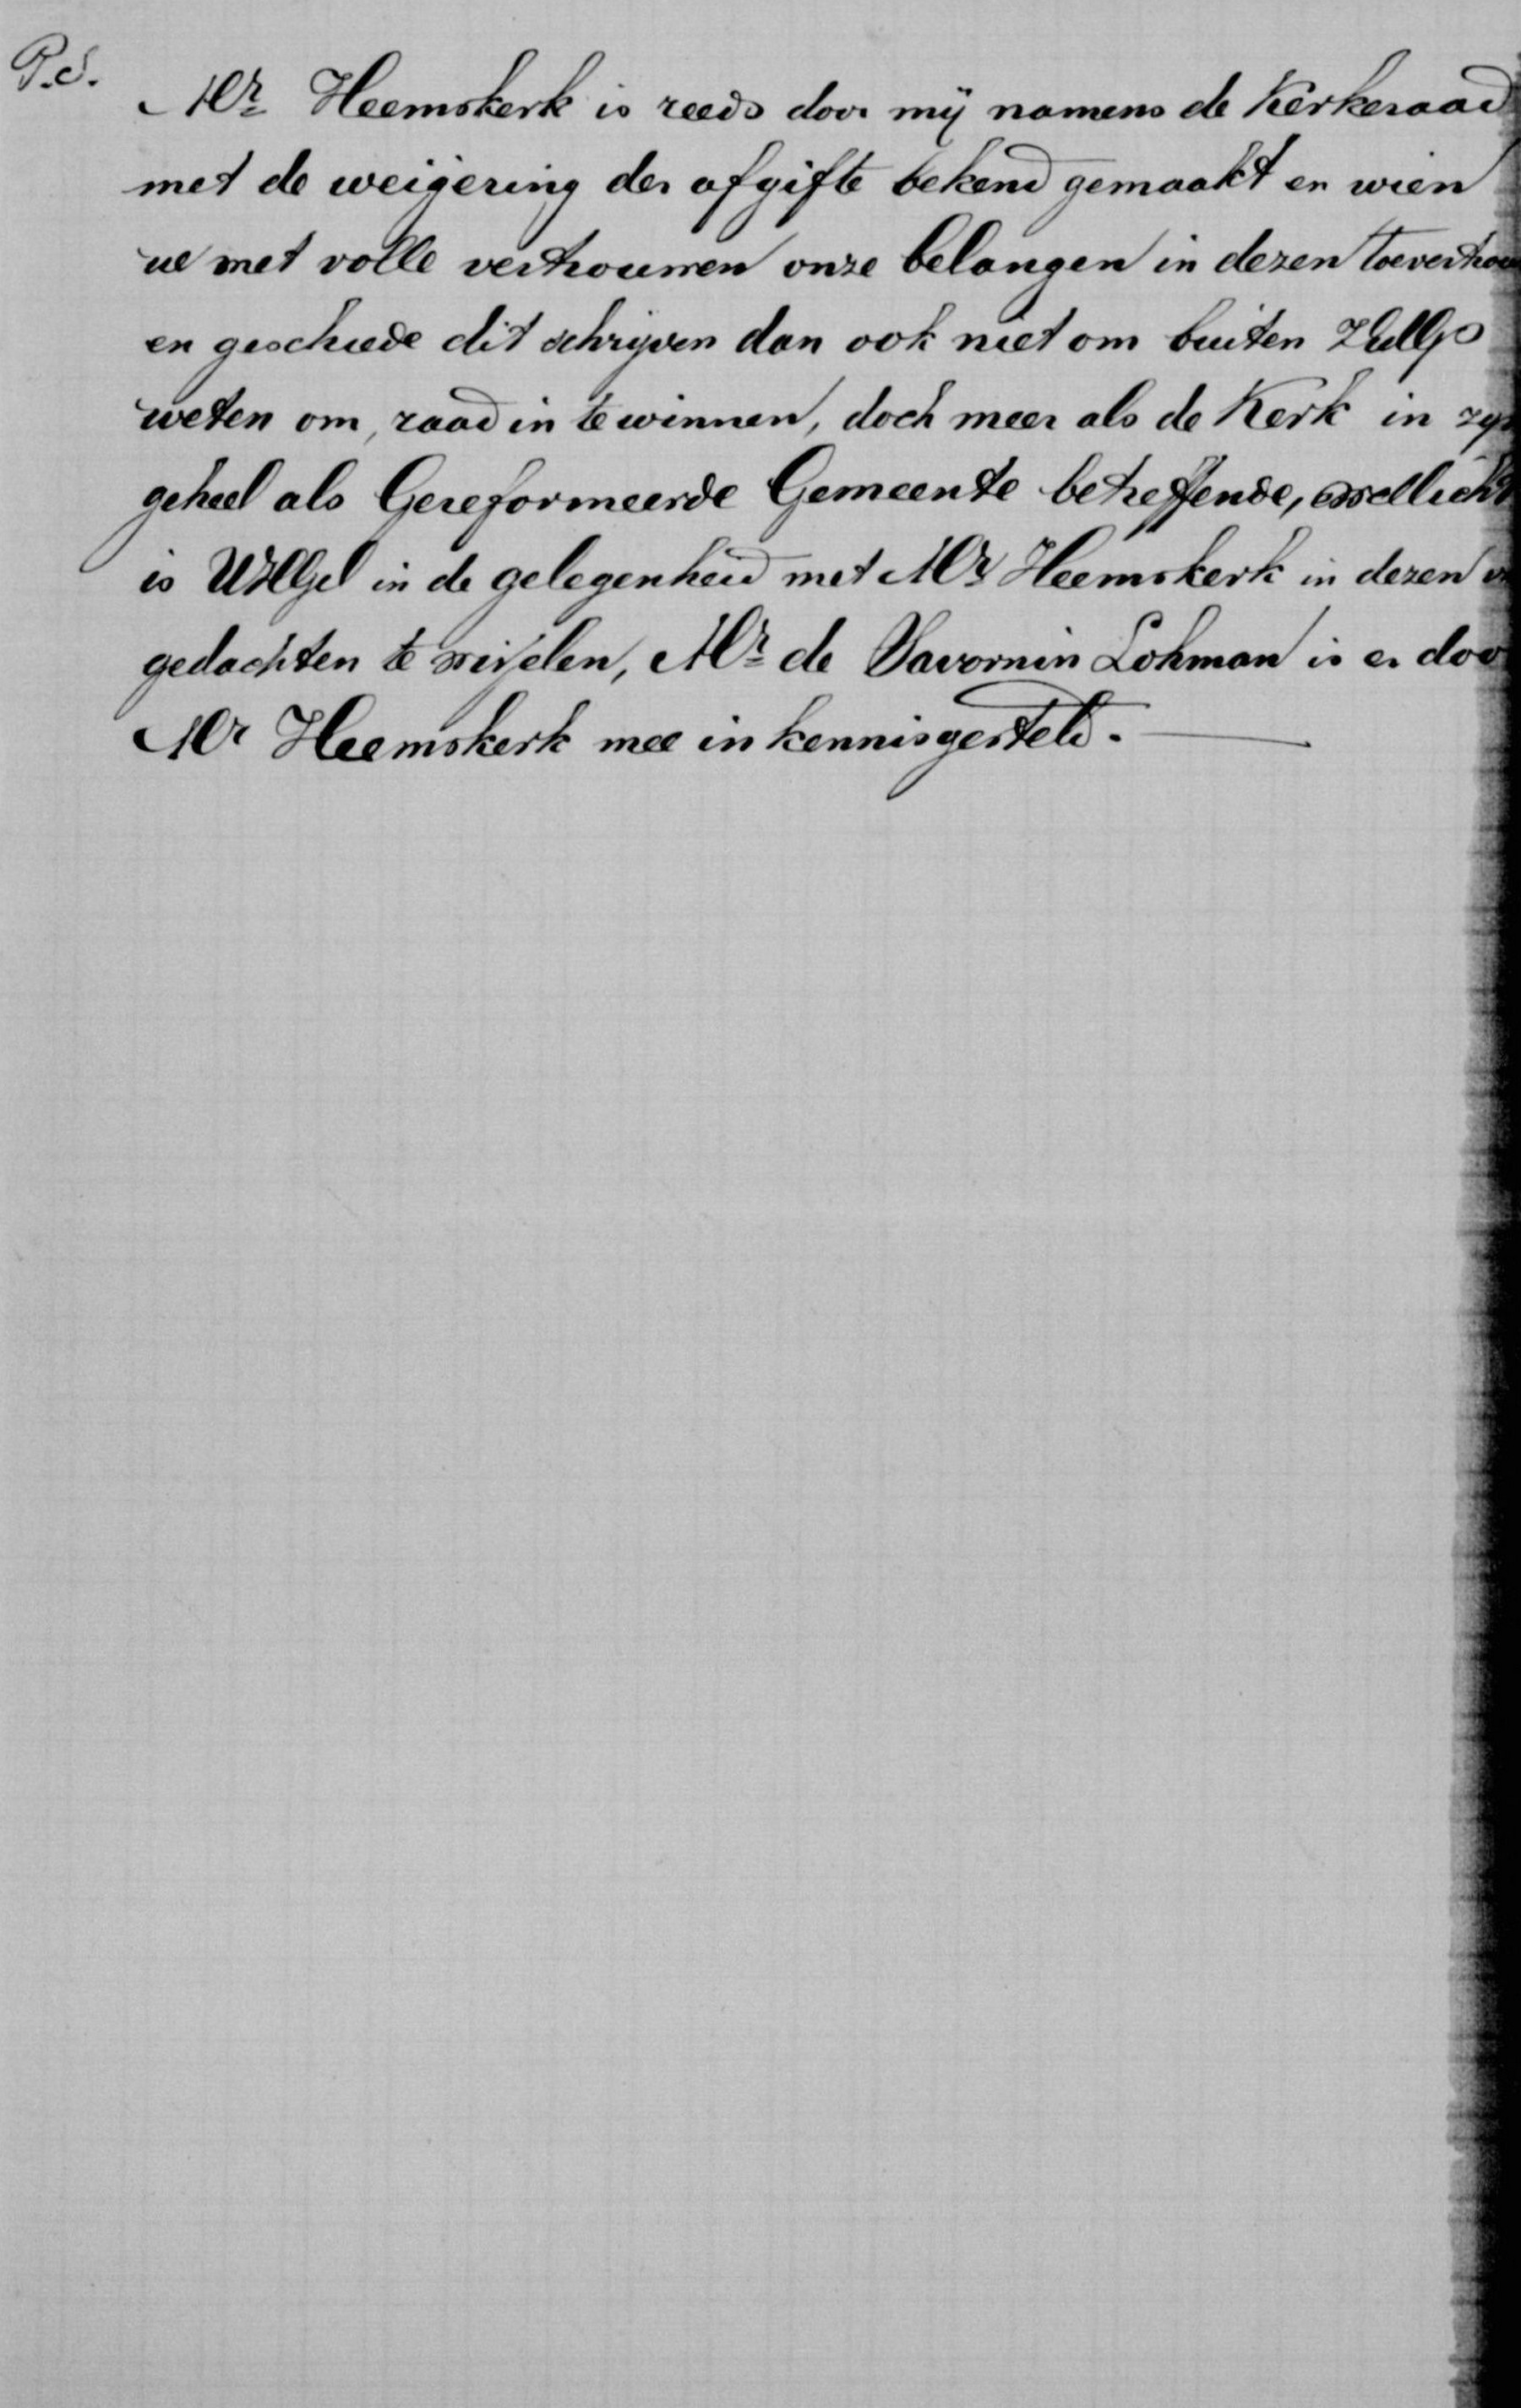 P.S.
Mr Heemskerk is reeds door mij namens de Kerkeraad
met de weigering der afgifte bekend gemaakt en wien
we met volle vertrouwen onze belangen in dezen toevertrou
en geschiede dit schrijven dan ook niet om buiten ZEdlGs
weten om, raad in te winnen, doch meer als de Kerk in zijn
geheel als Gereformeerde Gemeente betreffende, wellicht
is UEdlGel in de gelegenheid met Mr Heemskerk in dezen
gedachten te wisselen, Mr de Savornin Lohman is er doo
Mr Heemskerk mee in kennisgesteld.